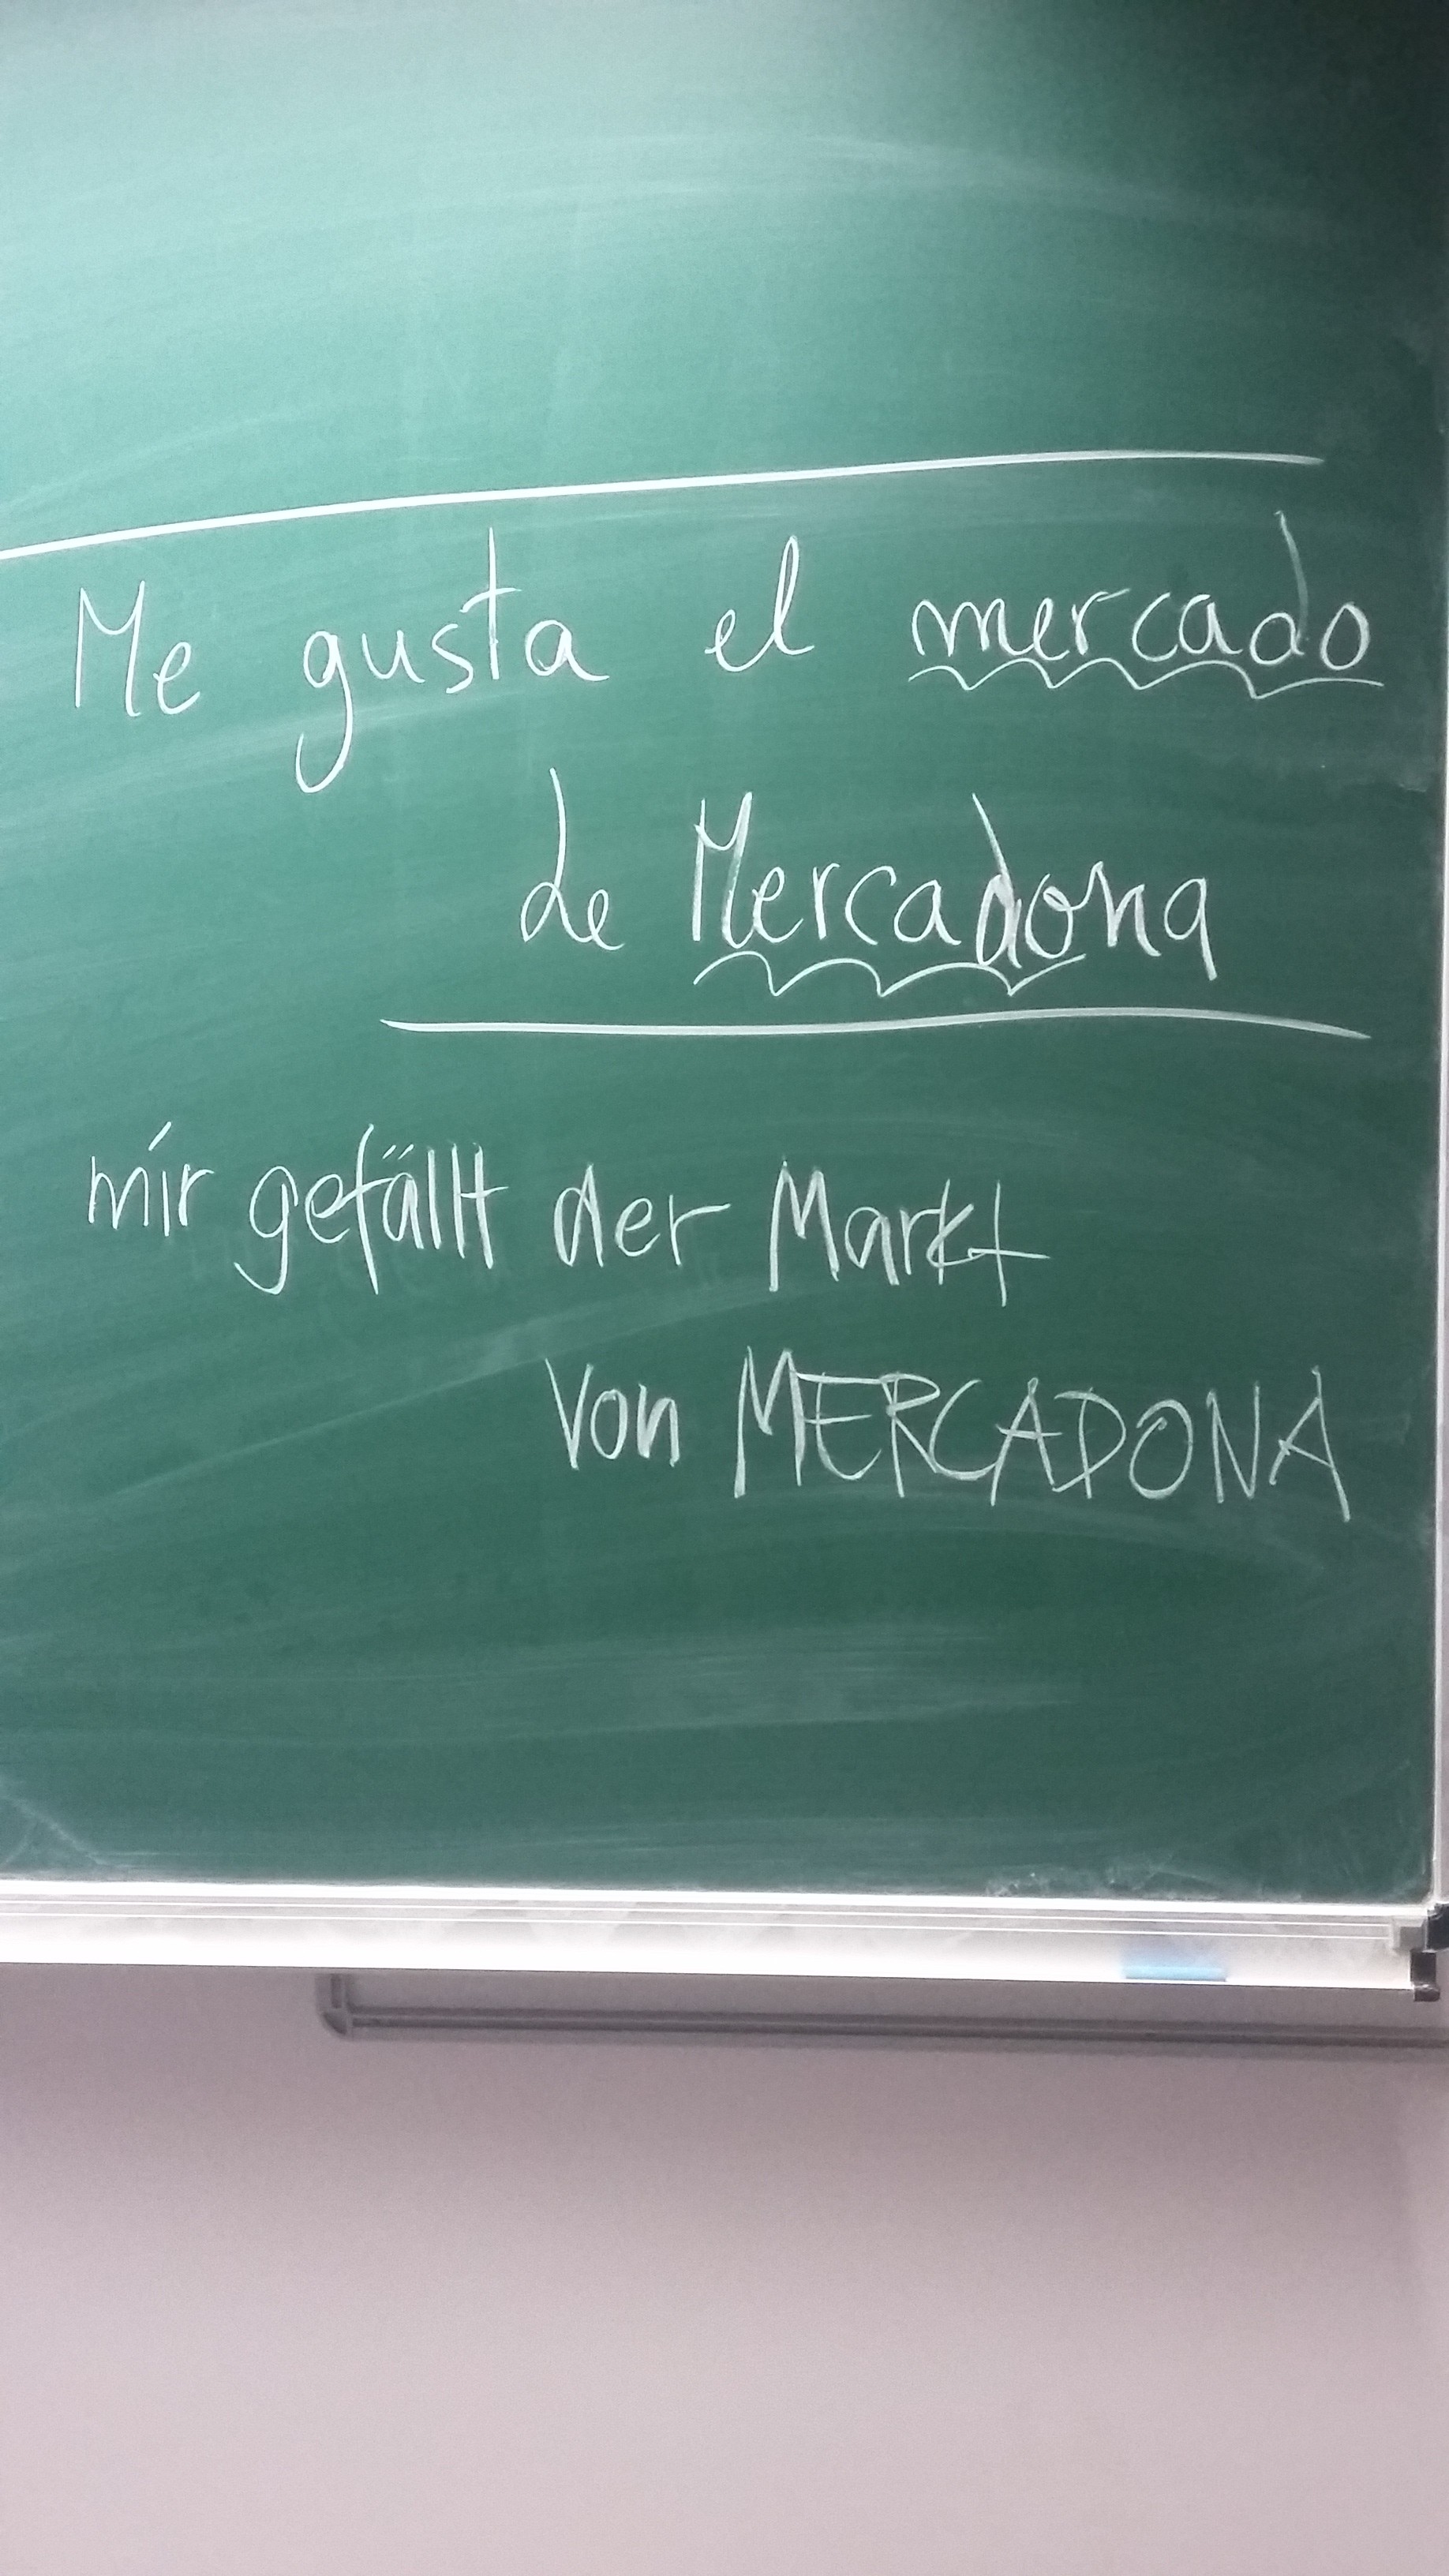 Me gusta el mercado
de Mercadona
mir gefällt der Markt
von MERCADONA